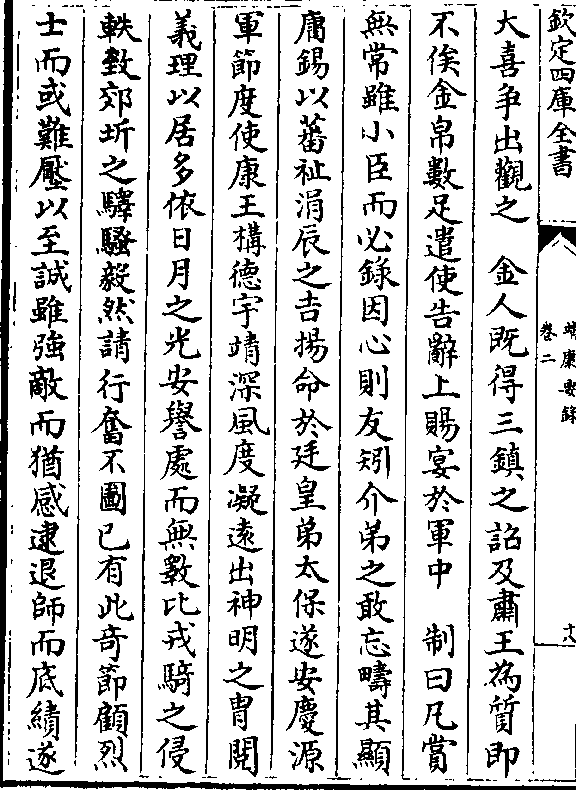 欽定四庫全書
靖康要錄
卷二
十八
大喜爭出觀之　金人既得三鎮之詔及肅王為質即
不俟金帛數足遣使告辭上賜宴於軍中　制曰凡賞
無常雖小臣而必錄因心則友矧介弟之敢忘疇其顯
庸錫以蕃祉涓辰之吉揚命於廷皇弟太保遂安慶源
軍節度使康王構德宇靖深風度凝遠出神明之胄閱
義理以居多依日月之光安譽處而無斁比戎騎之侵
軼斁郊圻之驛騷毅然請行奮不圖已有此奇節顧烈
士而或難壓以至誠雖強敵而猶感逮退師而底績遂